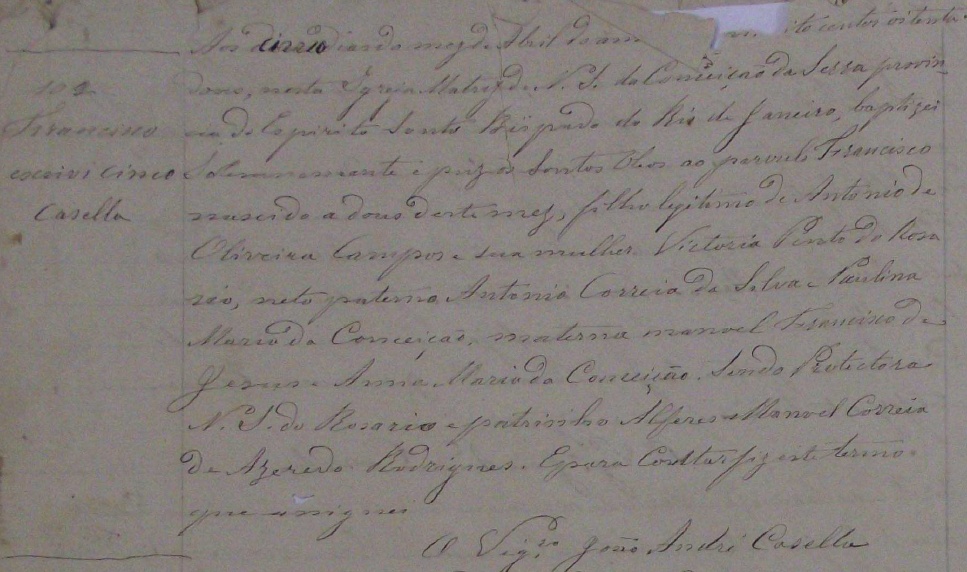 Aos cinco dias do mez de Abril do ann ito centos oitenta
dous, nesta Igreja Matriz de N. S. da Conceição da Serra provin
cia do Espirito Santo Bispado do Rio de Janeiro, baptizei
Solemnemente e puz os Santos Oleos ao parvulo Francisco
nascido a dous deste mez, filho legitimo de Antonio de
Oliveira Campos e sua mulher Victoria Pinto do Rosa
rio, neto paterno Antonio Correia da Silva e Paulina
Maria da Conceição, materna manoel Francisco de
Jesus e Anna Maria da Conceição. Sendo Protectora
N. S. do Rosario e patrinho Alferes Manoel Correia
de Azeredo Rodrigues. E para Constar fiz este termo
que assignei
O Vigro João André Casella
102
Francisco
escrivi cinco
Casella